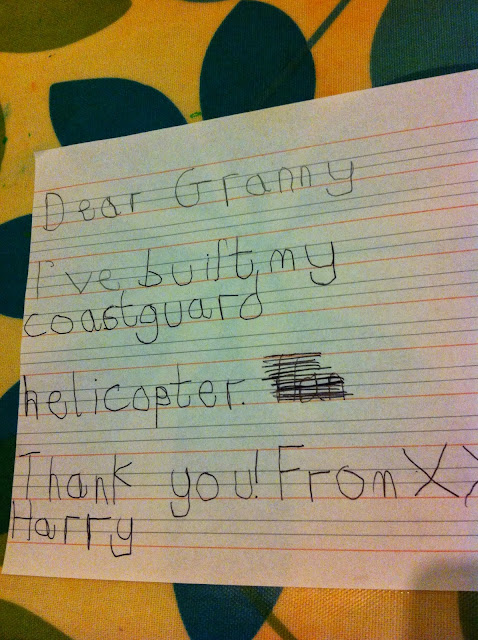 Dear Granny
I've built my
coastguard
helicopter.
Thank you! From XX
Harry